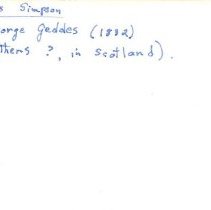 s Simpson
orge Geddes (1882)
thers ?, in Scotland).